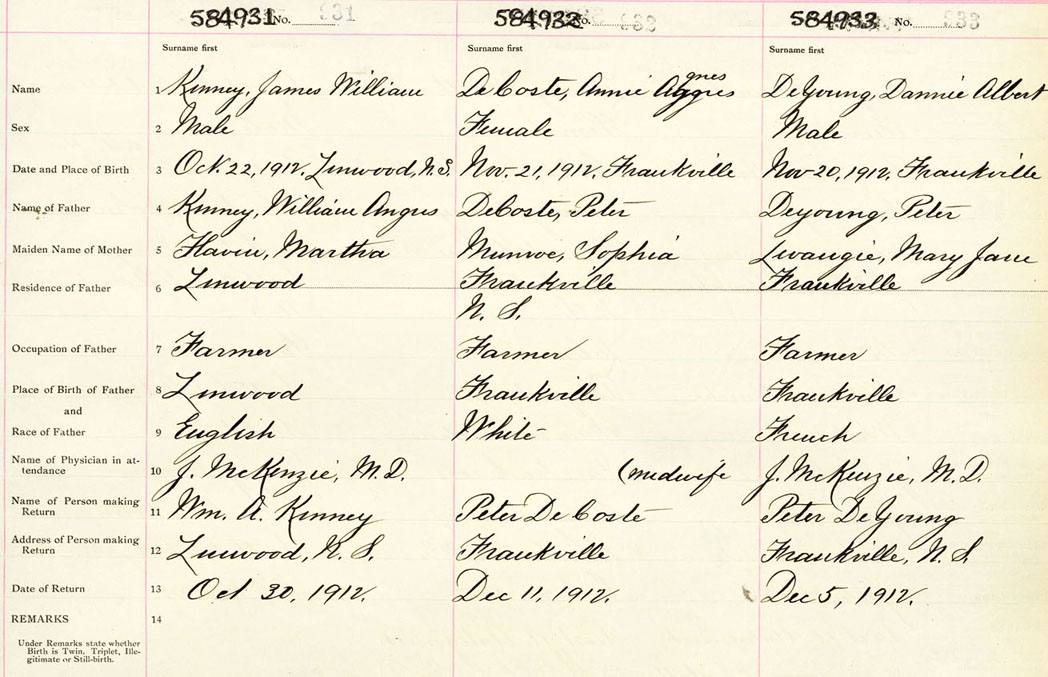 584931 No. 931 584932 No. 932 584933 No. 933
Surname first Surname first Surname first
Name 1 Kinney, James William DeCoste, Annie Agnes DeYoung, Dannie Albert
Sex 2 Male Female Male
Date and Place of Birth 3 Oct. 22, 1912. Linwood, N.S. Nov. 21, 1912. Frankville Nov 20, 1912. Frankville
Name of Father 4 Kinney, William Angus DeCoste, Peter Deyoung, Peter
Maiden Name of Mother 5 Flavin, Martha Munroe, Sophia Lwangie, Mary Jane
Residence of Father 6 Linwood Frankville Frankville
N. S.
Occupation of Father 7 Farmer Farmer Farmer
Place of Birth of Father 8 Linwood Frankville Frankville
and
Race of Father 9 English White French
Name of Physician in at-
tendance 10 J. McKenzie, M.D. (midwife J. McKenzie, M.D.
Name of Person making
Return 11 Wm. A. Kinney Peter DeCoste Peter DeYoung
Address of Person making
Return 12 Linwood, N. S. Frankville Frankville, N. S.
Date of Return 13 Oct 30, 1912. Dec 11, 1912. Dec 5, 1912.
REMARKS 14
Under Remarks state whether
Birth is Twin, Triplet, Ille-
gitimate or Still-birth.